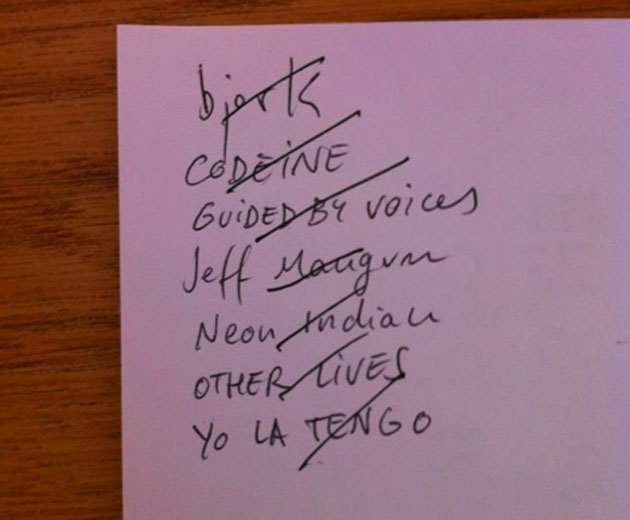 bjork
CODEINE
GUiDED BY VOiCES
Jeff Mangum
Neon Indian
OTHER LiVES
Yo LA TENGO